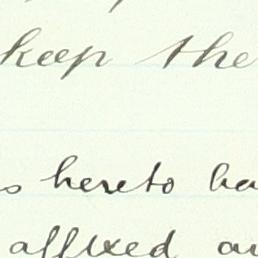 keep the
hereto
affixed